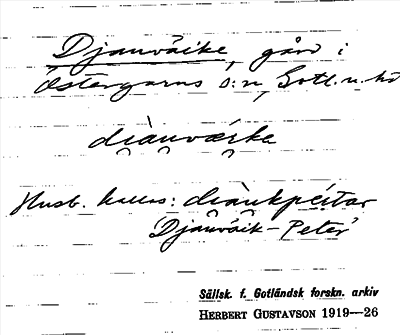 Djauvaike, gård i
Östergarns s:n, Gotl. n. hd
diàuvaike
Husb. kallas: diàukpéitar
'Djauvaik-Peter'
Sällsk. f. Gotländsk forskn. arkiv
HERBERT GUSTAVSON 1919—26